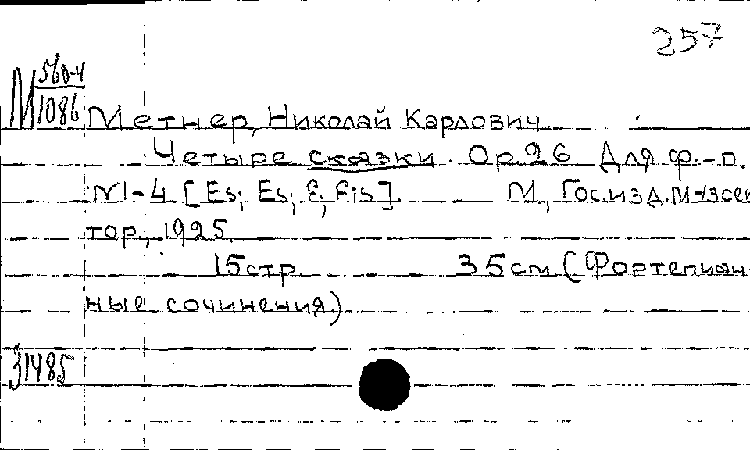 257
М 560-4
1086
Метнер, Николай Карлович
Четыре сказки. Op 26 Для ф.-п.
№1-4 [Es; Es; f; fis]. М., Гос.изд.М-узсек
тор, 1925.
15стр. 35см (Фортепиан-
ные сочинения.)
31485